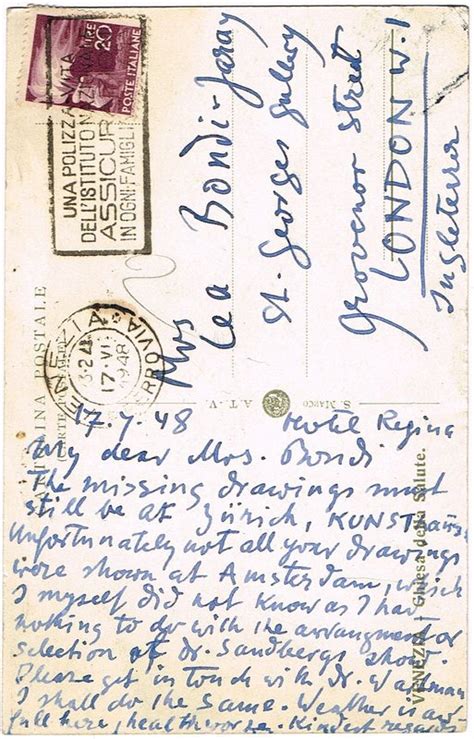 POSTE ITALIANE
LIRE 20
UNA POLIZZA VITA
DELL'ISTITUTO NAZ
ASSICUR
IN OGNI FAMIGLIA
Mrs
Lea Bondi-Jaray
St. Georges Gallery
Grovenor Street
LONDON W.1
Ingleterra
VENEZIA
FERROVIA
17.VI
1948
CARTOLINA POSTALE
S. MARCO
A.T.V.
VENEZIA - Chiesa della Salute.
17.7.48 Hotel Regina
My dear Mrs. Bondi
The missing drawings must
still be at Zürich, KUNSTHAUS
Unfortunately not all your drawings
were shown at Amsterdam, which
I myself did not know as I had
nothing to do with the arrangement or
selection at Dr. Sandbergs show.
Please get in touch with Dr. Wartmann
I shall do the same. Weather is aw-
full here, health worse. Kindest regards